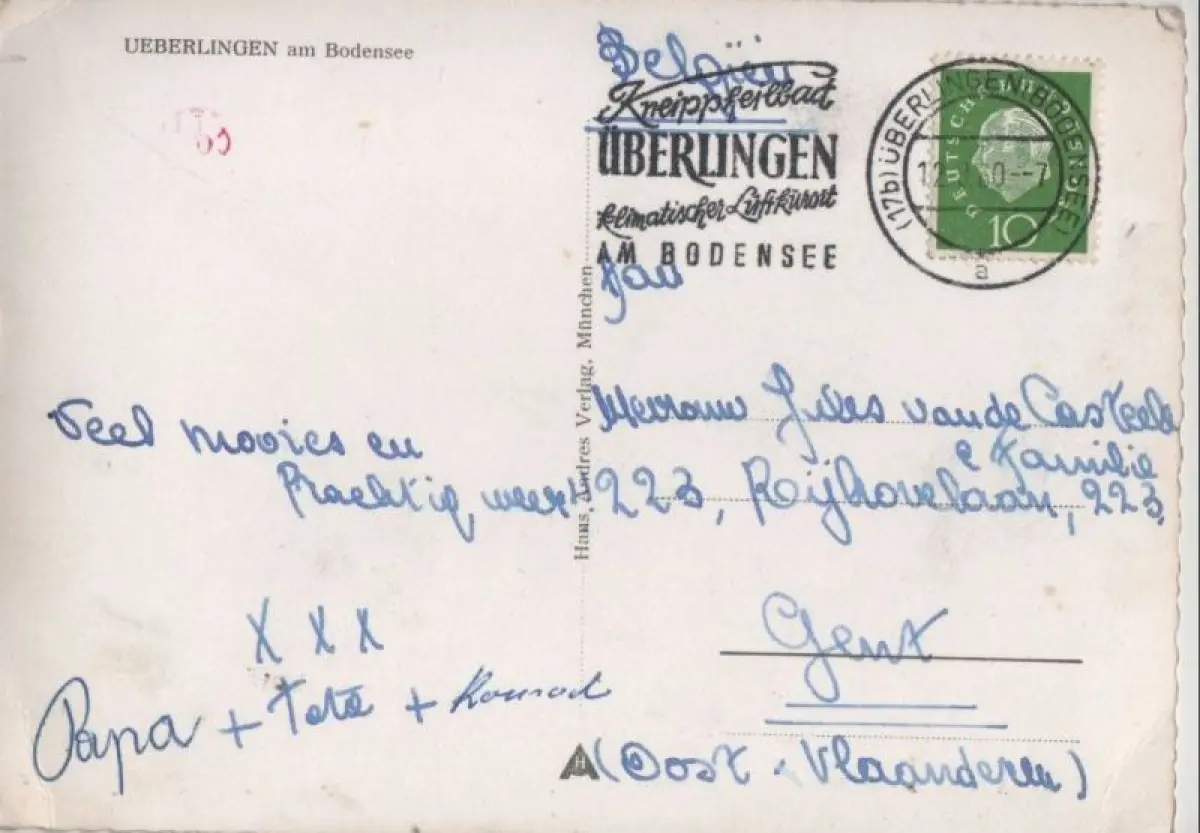 UEBERLINGEN am Bodensee
België
Kneippheilbad
ÜBERLINGEN
klimatischer Luftkurort
AM BODENSEE
(17b) ÜBERLINGEN (BODENSEE)
a
DEUTSCHE
10
Hans Andres Verlag, München
Veel moois en
Prachtig weer!
X X X
Papa + Tete + Konrad
Mevrouw Jules van de Casteele
& Familie
223, Rijhovelaan, 223
Gent
(Oost-Vlaanderen)
H